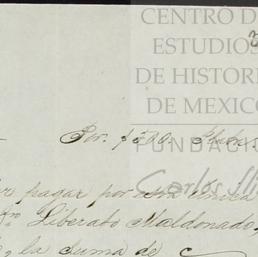 CENTRO D
ESTUDIOS
DE HISTORI
DE MEXICO
FUNDACI
Carlos Sli
Por. $500.
pagar por
Liberato Maldonado,
la suma de